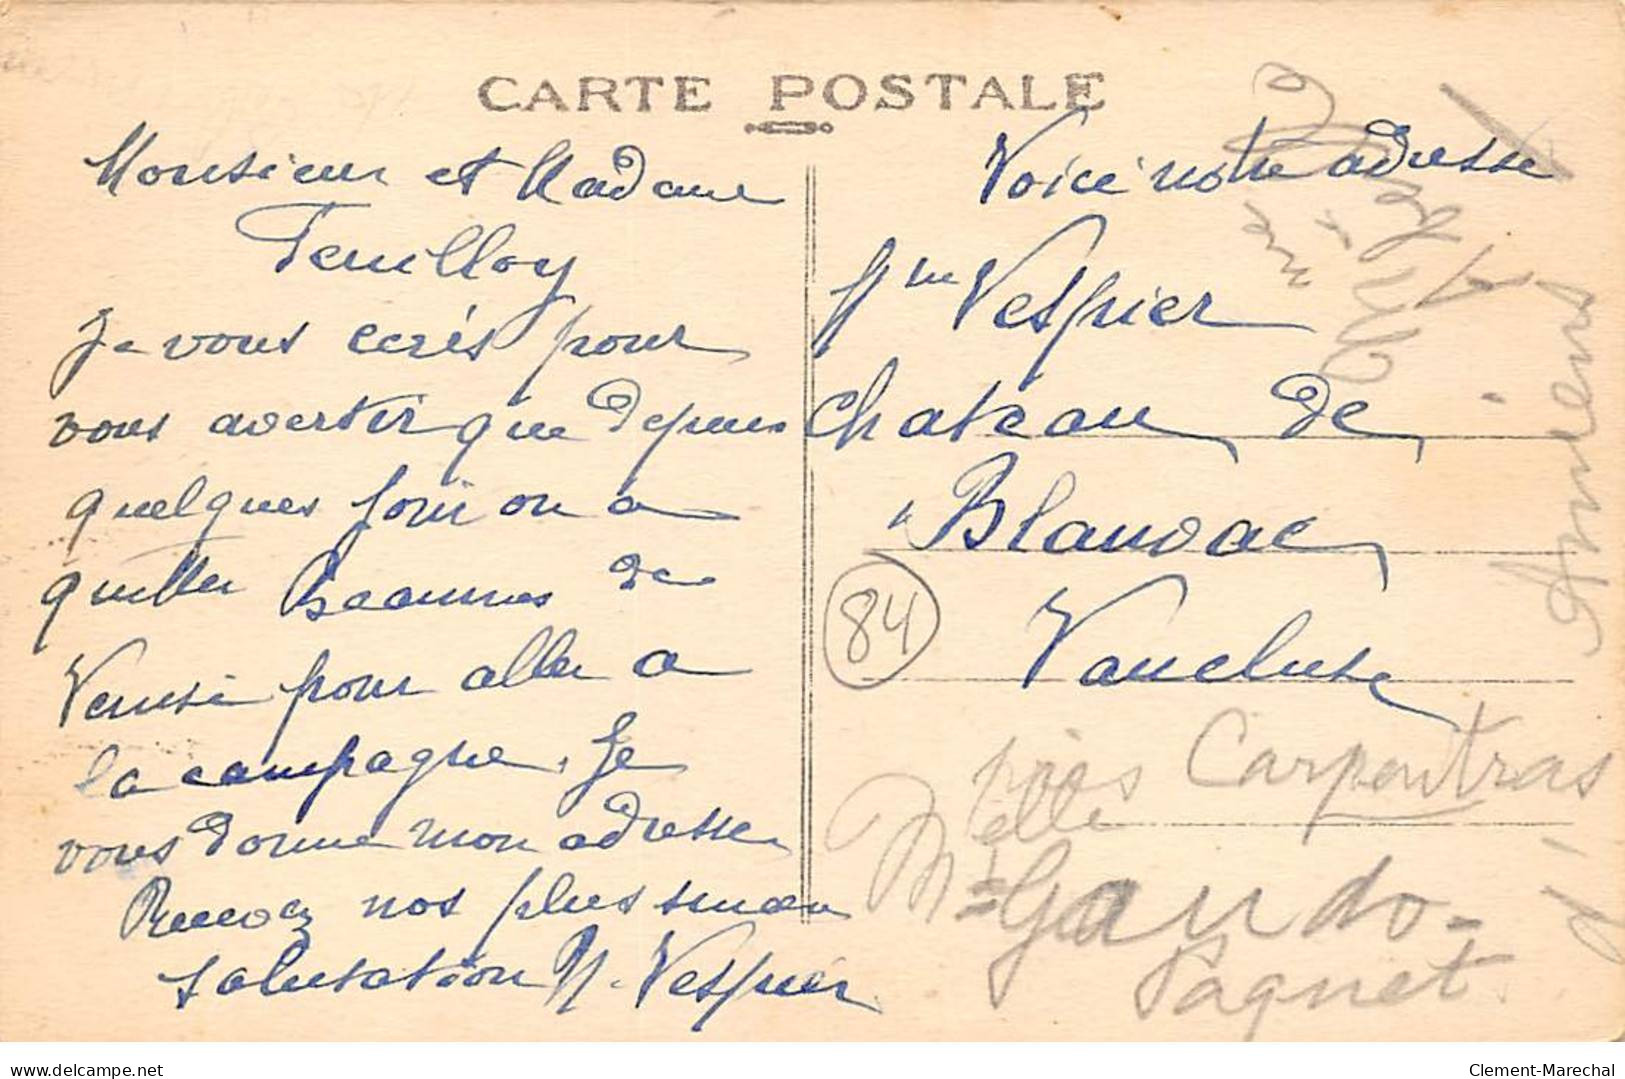 CARTE POSTALE
Monsieur et Madame
Feuilloy
Je vous ecris pour
vous avertir que depuis
quelques jour on a
quitter Beaumes de
Venise pour aller a
la campagne. Je
vous donne mon adresse
Recevez nos plus
salutation N. Vespier
Voici notre adresse
Vespier
Chateau de
Blauvac
Vaucluse
84
près Carpentras
Melle
Gaudo-
Paquet
d'Amiens
www.delcampe.net
Clement-Marechal